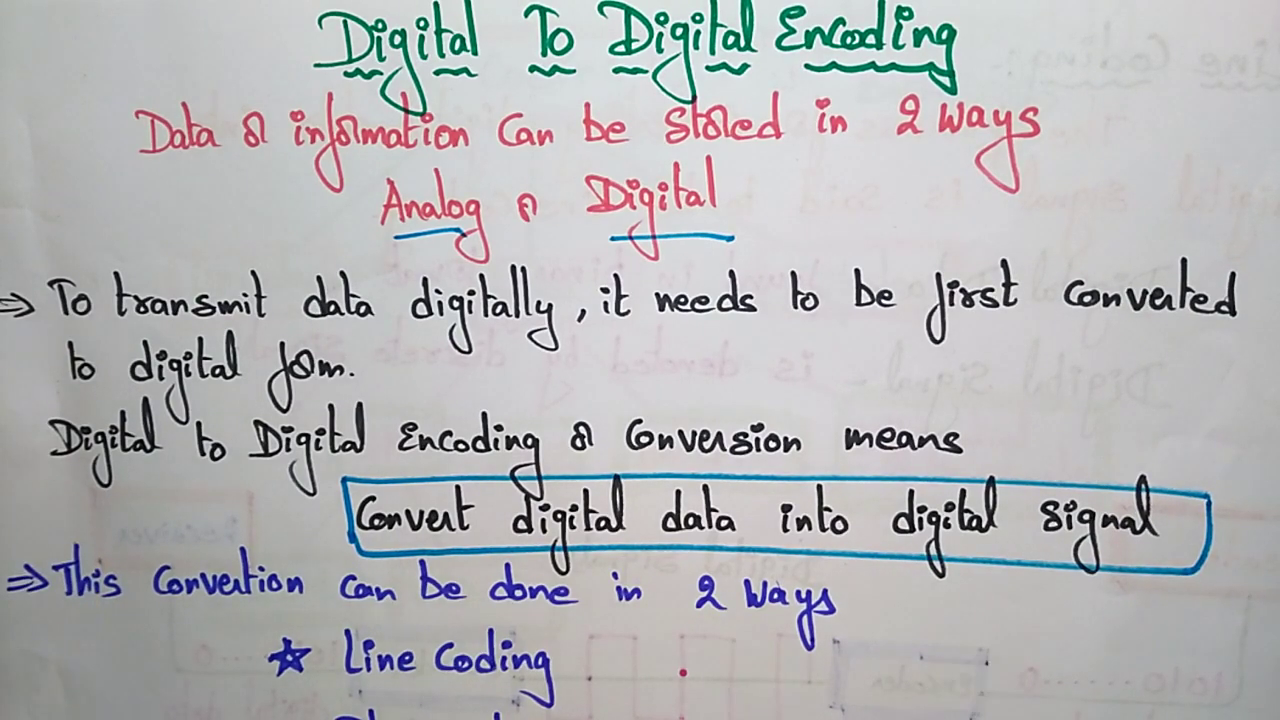 Digital To Digital Encoding
Data or information Can be stored in 2 ways
Analog or Digital
⇒ To transmit data digitally, it needs to be first converted
to digital form.
Digital to Digital Encoding or Conversion means
Convert digital data into digital signal
⇒ This Convertion can be done in 2 ways
☆ Line Coding